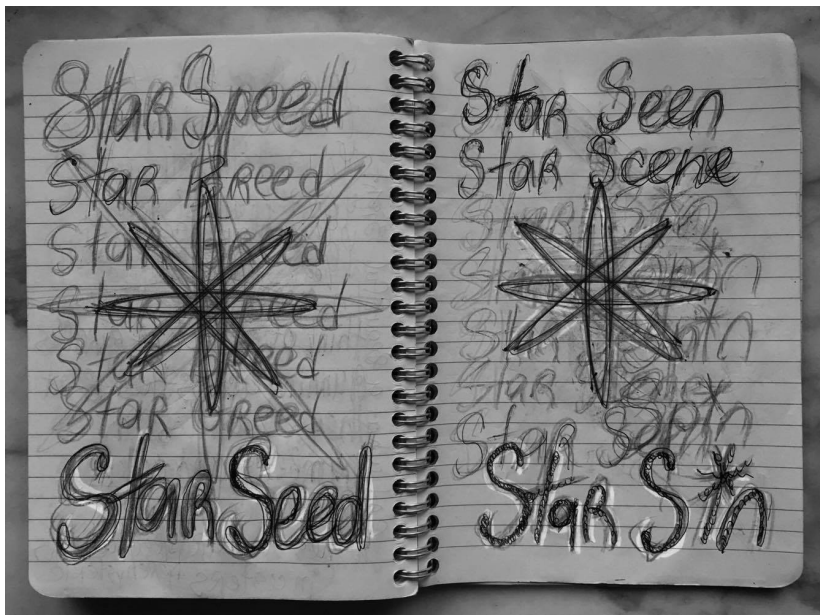 Star Speed
Star Breed
Star Greed
Star
Star
Star Creed
Star Seed
Star Seen
Star Scene
Star
Star
Star
Star
Star Spin
Star Sin